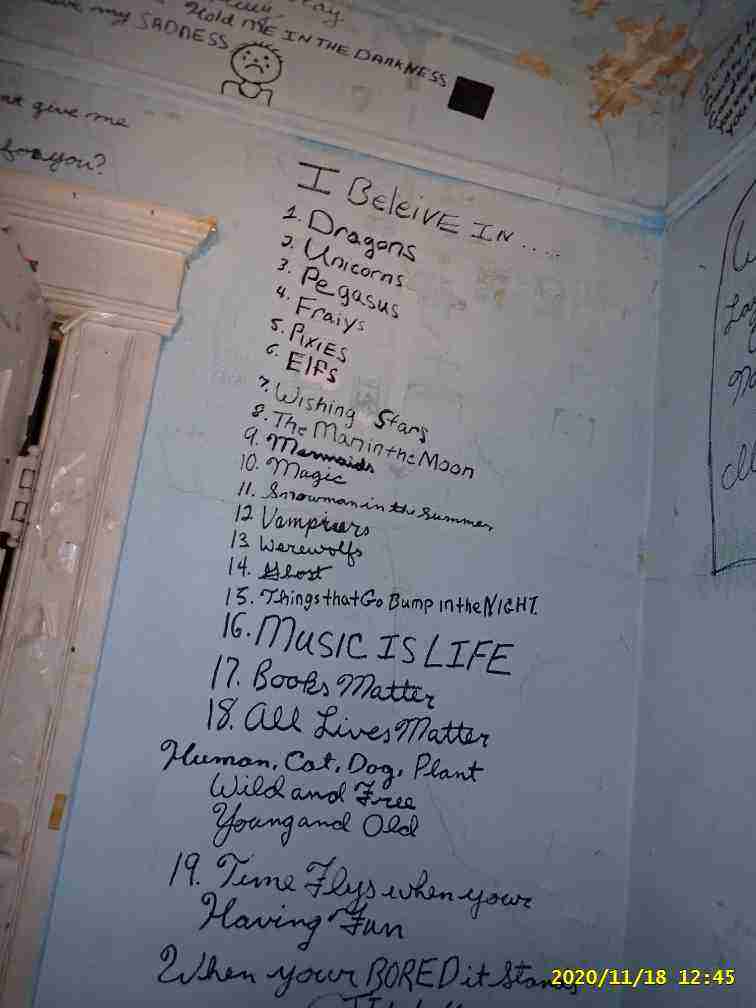 Hold ME IN THE DARKNESS
my SADNESS
give me
for you?
I BELEIVE IN.....
1. Dragons
2. Unicorns
3. Pegasus
4. Fraiys
5. PIXIES
6. Elfs
7. Wishing Stars
8. The Man in the Moon
9. Mermaids
10. Magic
11. Snowman in the Summer
12. Vampiers
13. Werewolfs
14. Ghost
15. Things that Go Bump in the NIGHT.
16. MUSIC IS LIFE
17. Books Matter
18. All Lives Matter
Human, Cat, Dog, Plant
Wild and Free
Young and Old
19. Time Flys when your
Having Fun
When your BORED it
2020/11/18 12:45